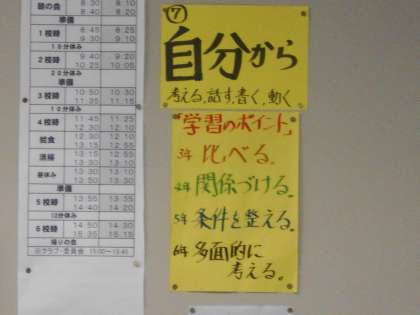 朝の会 8:30 8:40
準備
1校時 8:45 9:30
8:25 9:10
15分休み
2校時 9:40 10:25
9:20 10:05
20分休み
準備
3校時 10:50 11:35
10:30 11:15
10分休み
4校時 11:45 12:30
11:25 12:10
給食
清掃
昼休み
準備
5校時 13:55 14:40
13:35 14:20
10分休み
6校時 14:50 15:35
14:30 15:15
帰りの会
⑦
自分から
考える、話す、書く、動く
「学習のポイント」
3年 比べる。
4年 関係づける。
5年 条件を整える。
6年 多面的に
考える。